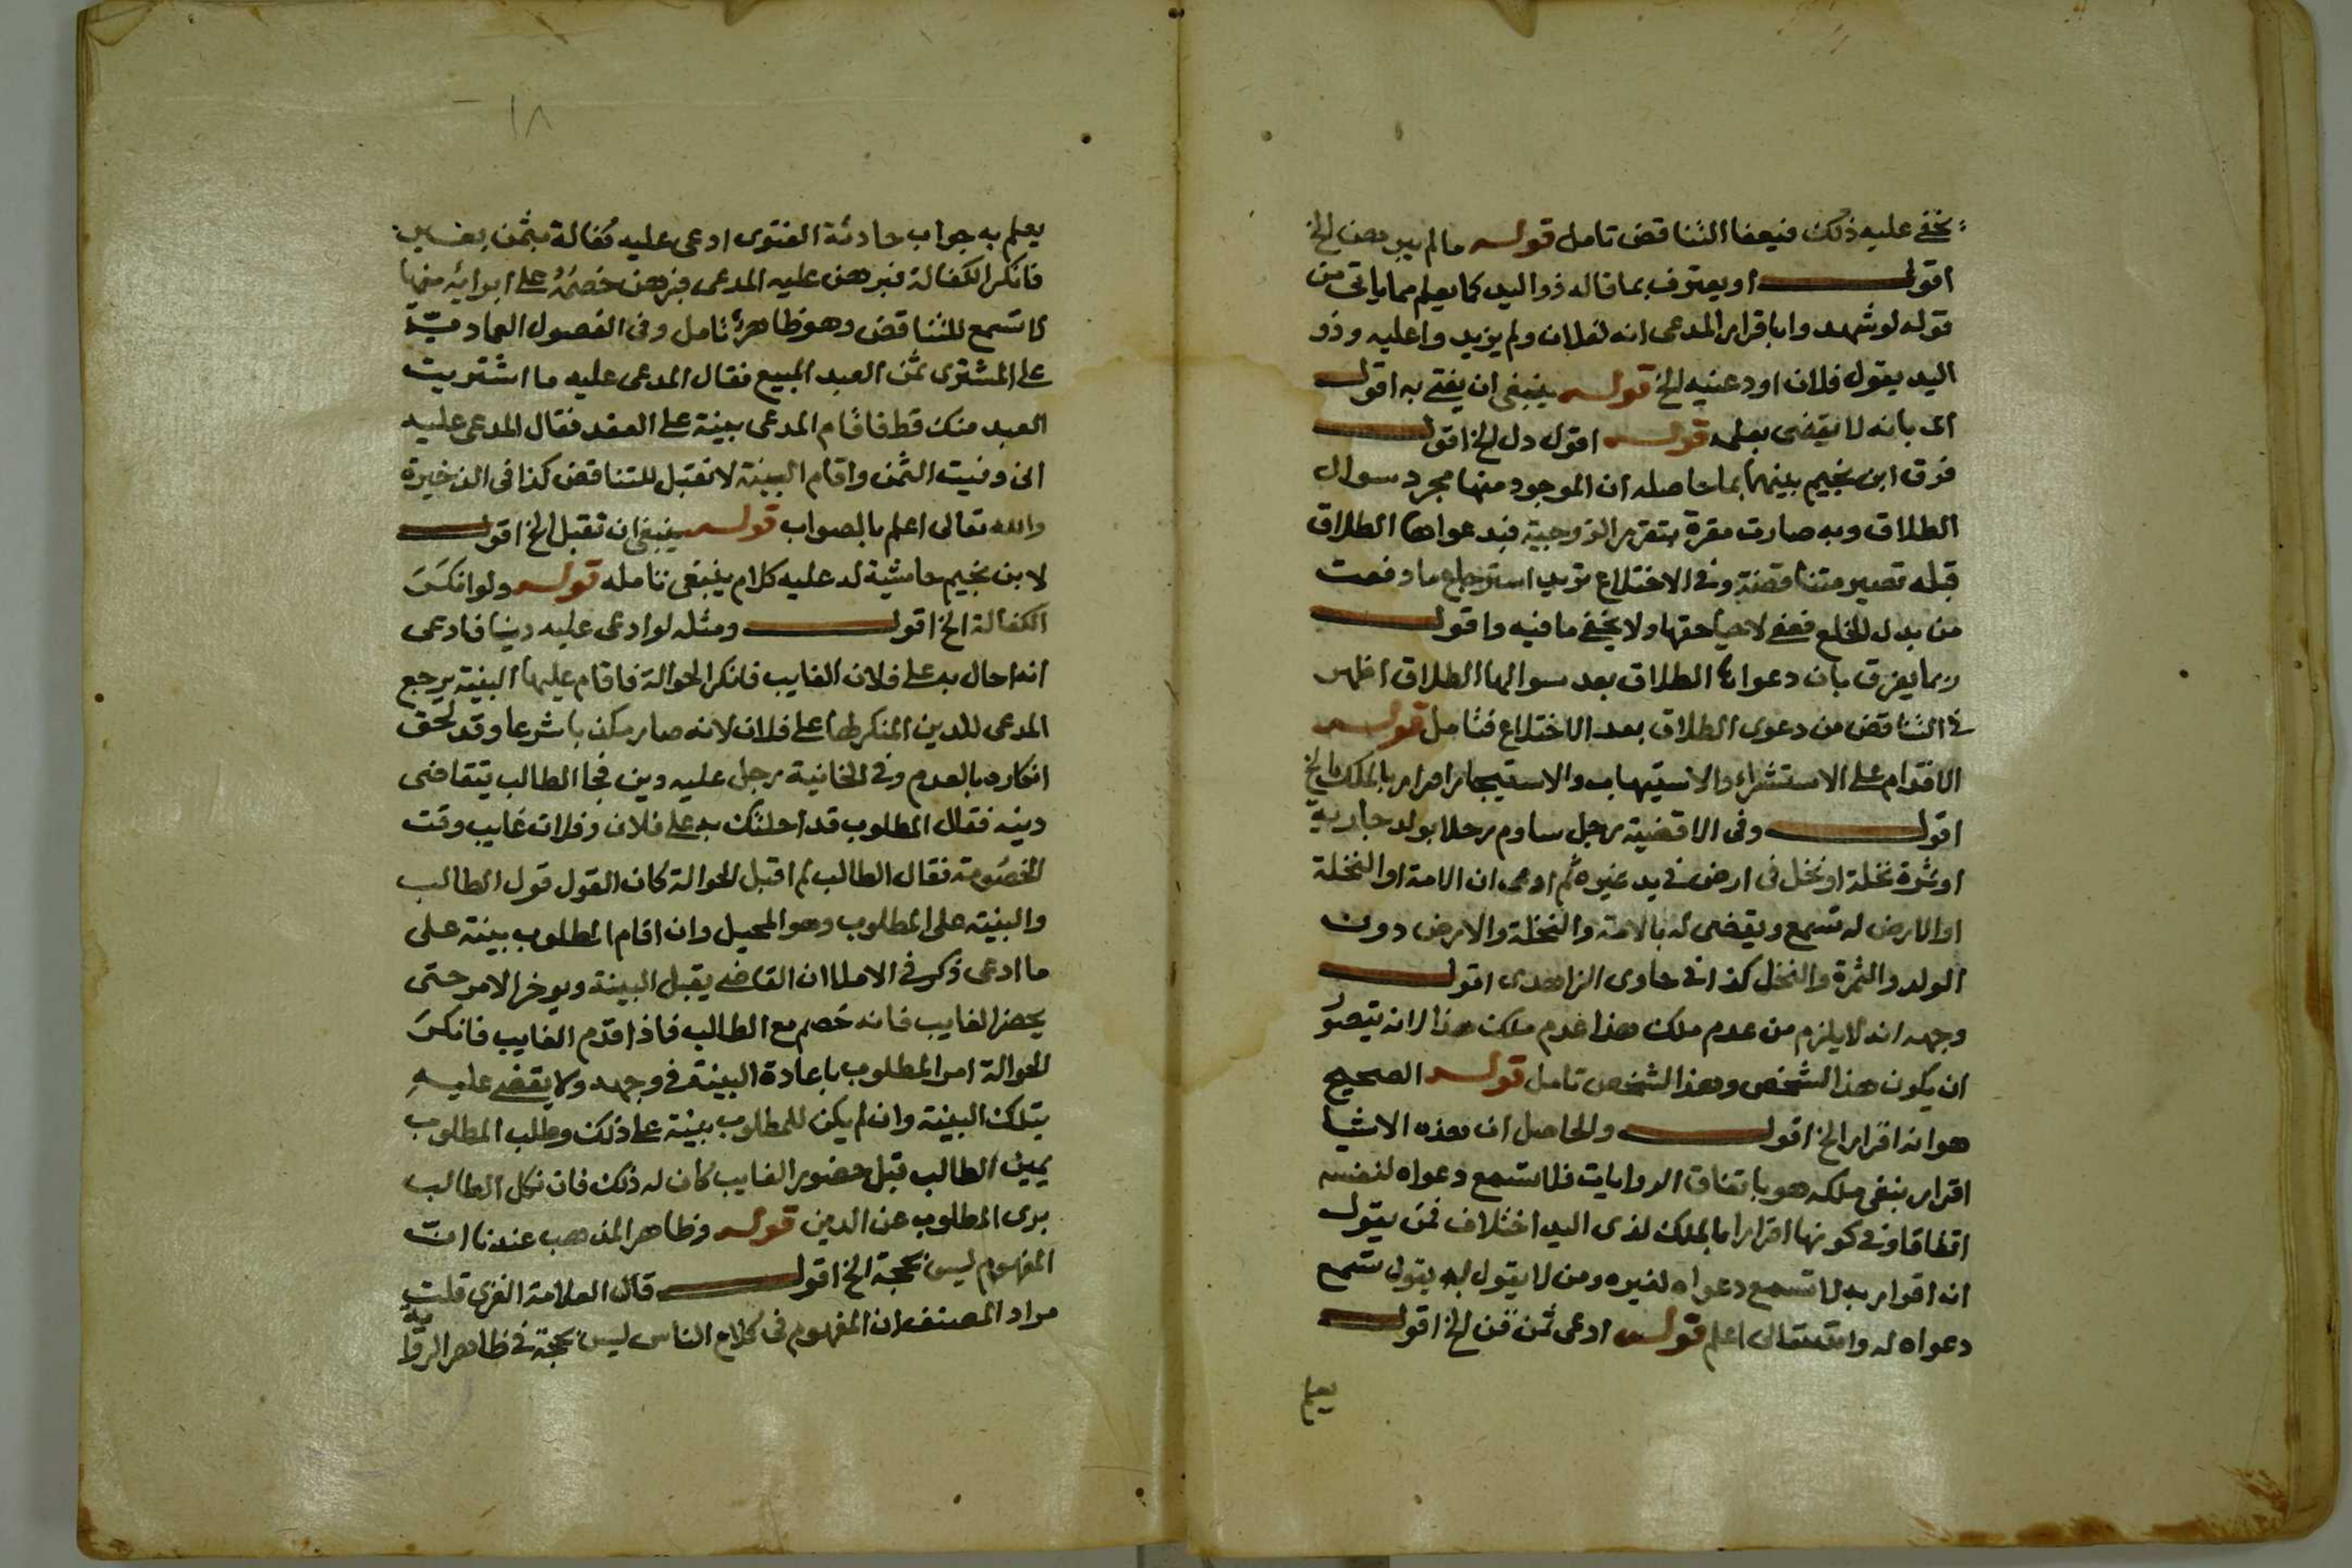 يخفى عليه ذلك فيعفا التناقض تامل قوله ما لم يبرهن الخ
اقول او يعترف بما قاله ذو اليد كما يعلم مما ياتى من
قوله لو شهدوا باقرار المدعى انه لفلان ولم يزيدوا عليه وذو
اليد يقول فلان اودعنيه الخ قوله ينبغى ان يفتى به اقول
اى بانه لا يقضى بعلمه قوله اقول دل الخ اقول
فرق ابن نجيم بينهما بما حاصله ان الموجود منها مجرد سوال
الطلاق وبه صارت مقرة بتقرير الزوجية فبدعواها الطلاق
قبله تصير متناقضة وفى الاختلاع تريد استرجاع ما دفعت
من بدل الخلع فهى لاحياء حقها ولا يخفى ما فيه واقول
ربما يفرق بان دعواها الطلاق بعد سوالها الطلاق اظهر
فى التناقض من دعوى الطلاق بعد الاختلاع فتامل قوله
الاقدام على الاستشراء والاستيهاب والاستيجار اقرار بالملك الخ
اقول وفى الاقضية رجل ساوم رجلا بولد جارية
او ثمرة نخلة او نخل فى ارض فى يد غيره ثم ادعى ان الامة او النخلة
او الارض له تسمع ويقضى له بالامة والنخلة والارض دون
الولد والثمرة والنخل كذا فى حاوى الزاهدى اقول
وجهه انه لا يلزم من عدم ملك هذا عدم ملك هذا لانه يتصور
ان يكون هذا لشخص وهذا لشخص تامل قوله الصحيح
هو انه اقرار الخ اقول والحاصل ان هذه الاشيا
اقرار بنفى ملكه هو باتفاق الروايات فلا تسمع دعواه لنفسه
اتفاقا وفى كونها اقرارا بالملك لذى اليد اختلاف فمن يقول
انه اقرار به لا تسمع دعواه لغيره ومن لا يقول به يقول تسمع
دعواه له والله تعالى اعلم قوله ادعى ثمن قن الخ اقول
يعلم
١٨
يعلم به جواب حادثة الفتوى ادعى عليه كفالة بثمن
فانكر الكفالة فبرهن عليه المدعى فبرهن خصمه على ابرائه منها
لا تسمع للتناقض وهو ظاهر تامل وفى الفصول العمادية
على المشترى ثمن العبد المبيع فقال المدعى عليه ما اشتريت
العبد منك قط فاقام المدعى بينة على العقد فقال المدعى عليه
انى وفيت الثمن واقام البينة لا تقبل للتناقض كذا فى الذخيرة
والله تعالى اعلم بالصواب قوله ينبغى ان تقبل الخ اقول
لابن نجيم حاشية له عليه كلام ينبغى تامله قوله ولو انكر
الكفالة الخ اقول ومثله لو ادعى عليه دينا فادعى
انه احال به على فلان الغايب فانكر الحوالة فاقام عليها البينة يرجع
المدعى للدين المنكر لها على فلان لانه صار مكذبا شرعا وقد لحق
انكاره بالعدم وفى الخانية رجل عليه دين فجا الطالب يتقاضى
دينه فقال المطلوب قد احلتك به على فلان وفلان غايب وقت
الخصومة فقال الطالب لم اقبل الحوالة كان القول قول الطالب
والبينة على المطلوب وهو المحيل وان اقام المطلوب بينة على
ما ادعى ذكر فى الاملا ان القاضى يقبل البينة ويوخر الامر حتى
يحضر الغايب فانه خصم مع الطالب فاذا قدم الغايب فانكر
الحوالة امر المطلوب باعادة البينة فى وجهه ولا يقضى عليه
بتلك البينة وان لم يكن للمطلوب بينة على ذلك وطلب المطلوب
يمين الطالب قبل حضور الغايب كان له ذلك فان نكل الطالب
برى المطلوب عن الدين قوله وظاهر المذهب عندنا ان
المفهوم ليس بحجة الخ اقول قال العلامة الغزى قلت
مراد المصنف ان المفهوم فى كلام الناس ليس بحجة فى ظاهر الرواية